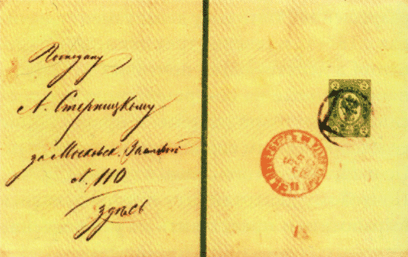 Господину
А. Стерницкому
за Московск. Заставой
№ 110
здесь